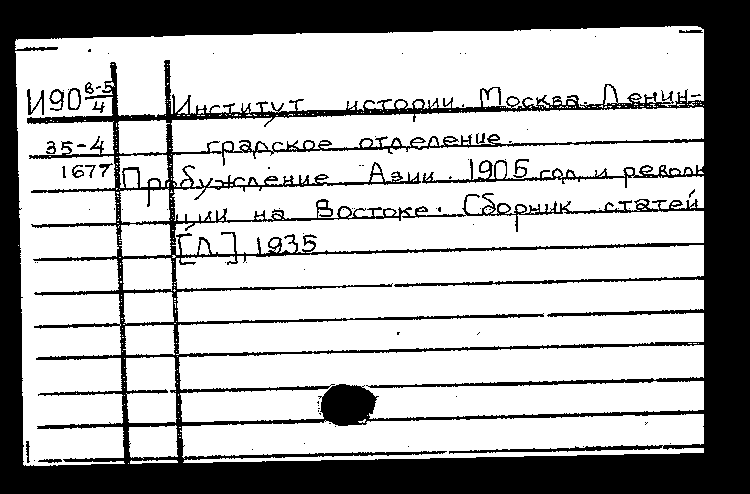 И90 в-5/4 Институт истории. Москва. Ленин-
35-4 градское отделение.
1677 Пробуждение Азии. 1905 год и револю
ции на Востоке. Сборник статей
[Л.], 1935